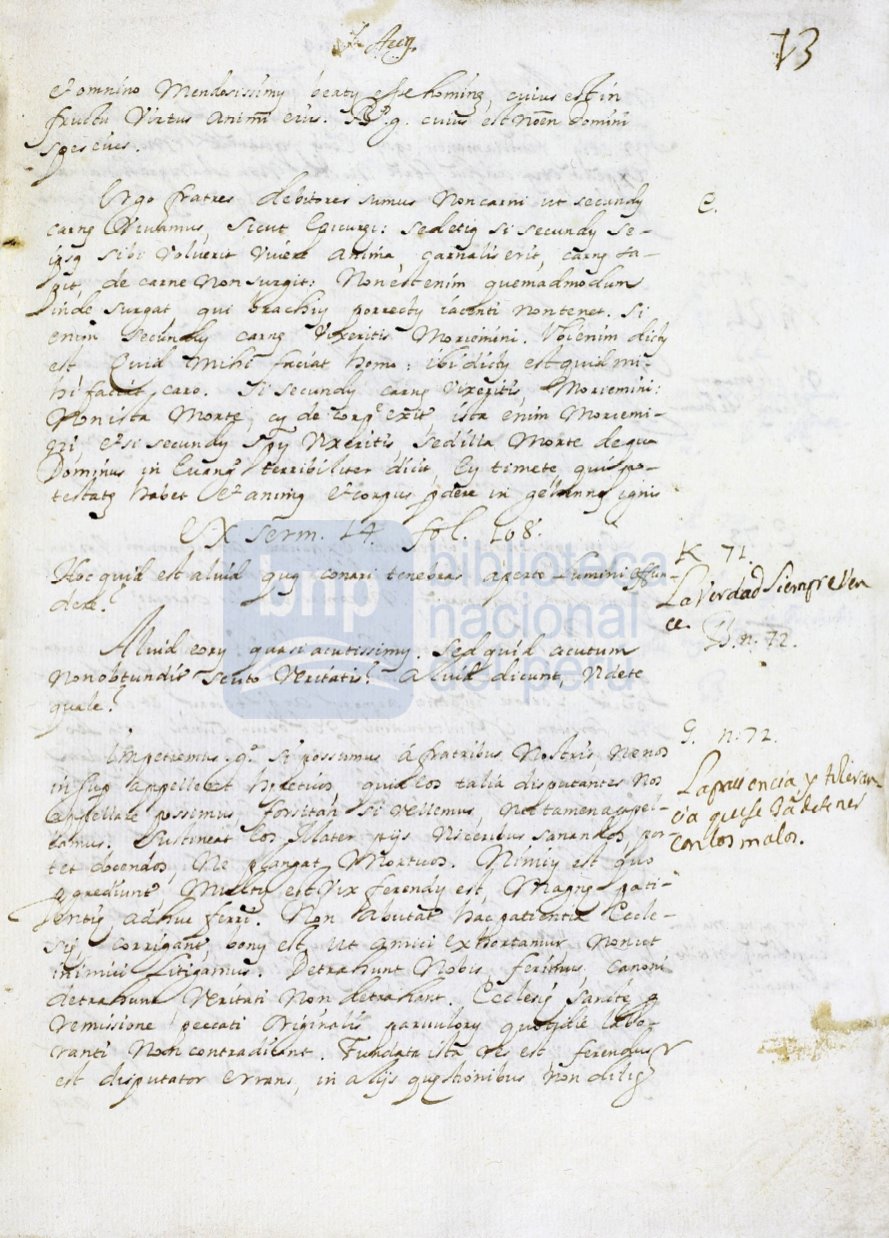 13
et omnino Mendosissimũ beatũ esse hominẽ, cuius est in
fructu Virtus animi eius. R. g. cuius est Nõen Domini
spes eius.
Ergo fratres debitores sumus Non carni ut secundũ
carnẽ Vivamus, sicut Epicurei: sed etiã si secundũ se-
ipsã sibi voluerit vivere anima, carnalis erit, carnẽ sa-
pit, de carne Non surgit: Non est enim quemadmodum
inde surgat qui brachiũ porrectũ iacenti non tenet. Si
enim secundũ carnẽ Vixeritis Moriemini. Vbi enim dictũ
est Quid Mihi faciat homo: ibi dictũ est quid mi-
hi faciat caro. Si secundũ carnẽ vixeritis, Moriemini:
Non ista Morte, cũ de corpe exit ista enim Moriemi-
ni, et si secundũ Spũ Vixeritis, sed illa Morte de qua
Dominus in Euang terribiliter dicit, Eũ timete qui po-
testatẽ habet et animã et corpus pdere in gehennã ignis
C.
Ex serm. 14 fol. 108.
Hoc quid est aliud quã conari tenebras aperte Lumini offun-
dere?
K 71.
La verdad siempre ven
ce.
B. n. 72.
Aliud eorũ quasi acutissimũ. Sed quid acutum
non obtundit scuto Veritatis? aliud dicunt, Videte
quale?
Impetremus g. si possumus à fratribus Nostris Ne nos
insup appellent hæreticos, quid eos talia disputantes Nos
appellare possimus forsitan si vellemus, Nec tamen appel-
lamus. Sustineat eos Mater pijs Visceribus sanandos por-
tet docendos, Ne plangat Mortuos. Nimiũ est quo
progrediunt Multũ est Vix ferendũ est, Magnæ pati-
entiæ adhuc ferri. Non abutat hac patientia Eccle-
siæ corrigant, bonũ est, ut amici exhortamur Non ut
inimici Litigamus. Detrahunt Nobis ferimus, canoni
detrahunt Veritati Non detrahant. Ecclesiæ Sanctæ p
remissione peccati Originalis parvulorũ quotidie labo-
ranti Non contradicant. Fundata ista res est ferendus
est disputator Errans, in alijs quæstionibus Non dilig
G. n. 72.
La paciencia y toleran
cia que se ha de tener
con los malos.
bnp biblioteca
nacional
del perú